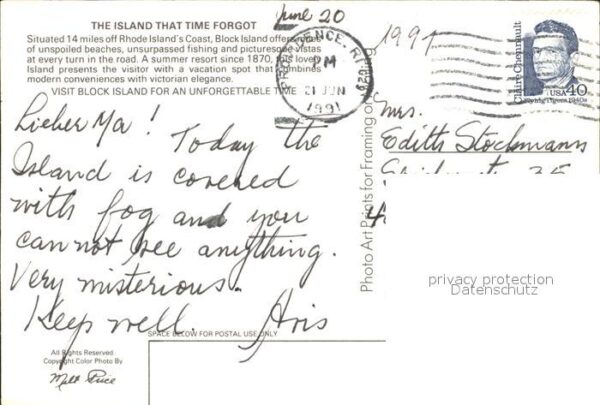 June 20
1991
THE ISLAND THAT TIME FORGOT
Situated 14 miles off Rhode Island's Coast, Block Island offers miles
of unspoiled beaches, unsurpassed fishing and picturesque vistas
at every turn in the road. A summer resort since 1870, this lovely
Island presents the visitor with a vacation spot that combines
modern conveniences with victorian elegance.
VISIT BLOCK ISLAND FOR AN UNFORGETTABLE TIME
PROVIDENCE, RI
PM
21 JUN
1991
Claire Chennault
Flying Tigers 1940s
USA 40
Lieber Ma! Today the
Island is covered
with fog and you
can not see anything.
Very misterious.
Keep well. Aris
Mrs.
Edith Stockmann
35
Photo Art Prints for Framing
privacy protection
Datenschutz
SPACE BELOW FOR POSTAL USE ONLY
All Rights Reserved
Copyright Color Photo By
Milt Price